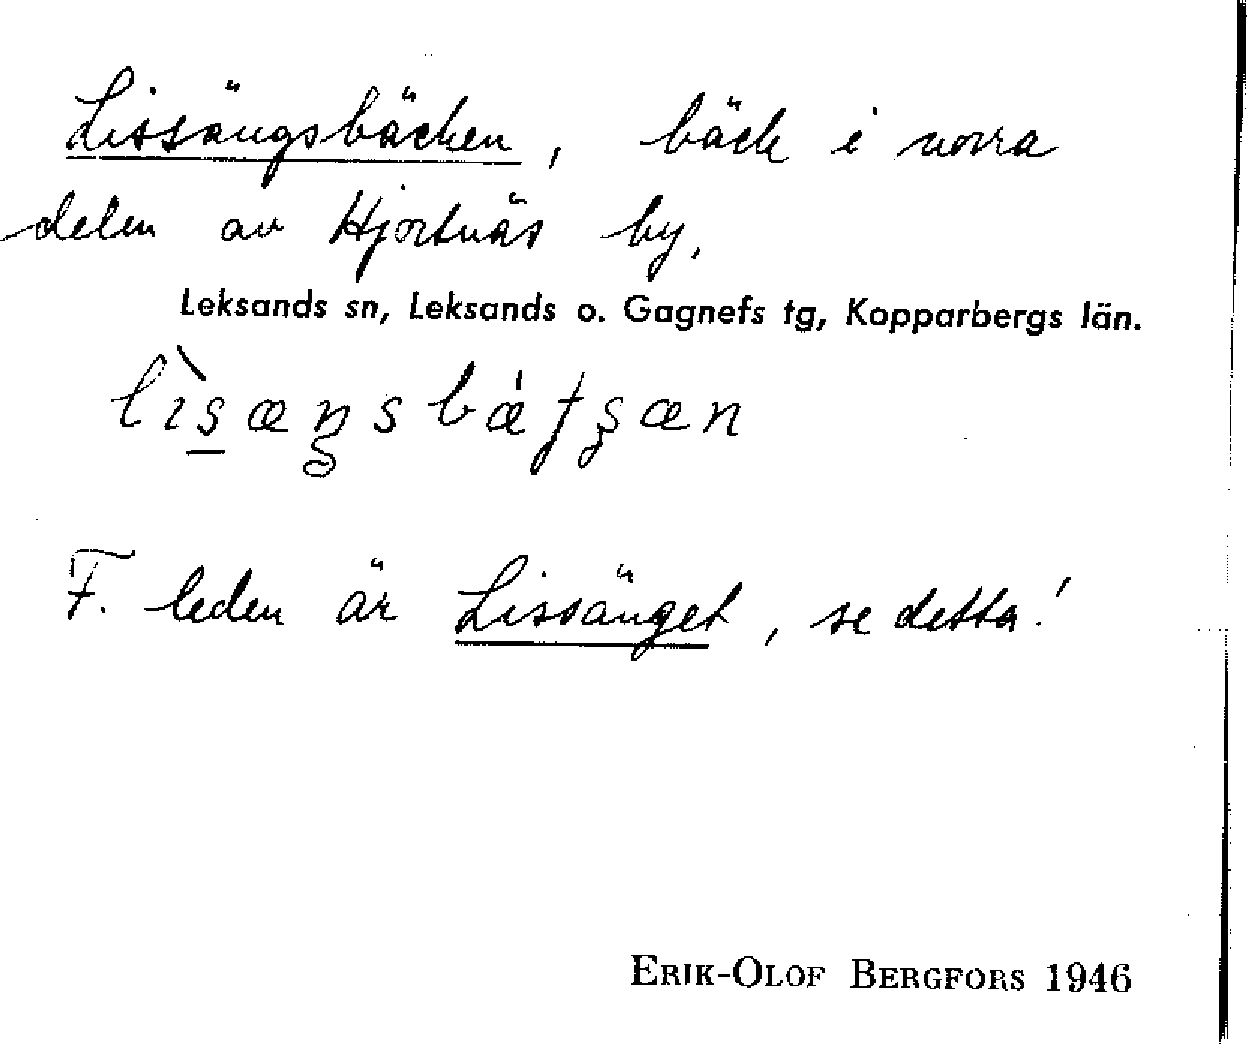 Lissängsbäcken, bäck i norra
delen av Hjortnäs by.
Leksands sn, Leksands o. Gagnefs tg, Kopparbergs län.
F. leden är Lissänget, se detta!
ERIK-OLOF BERGFORS 1946